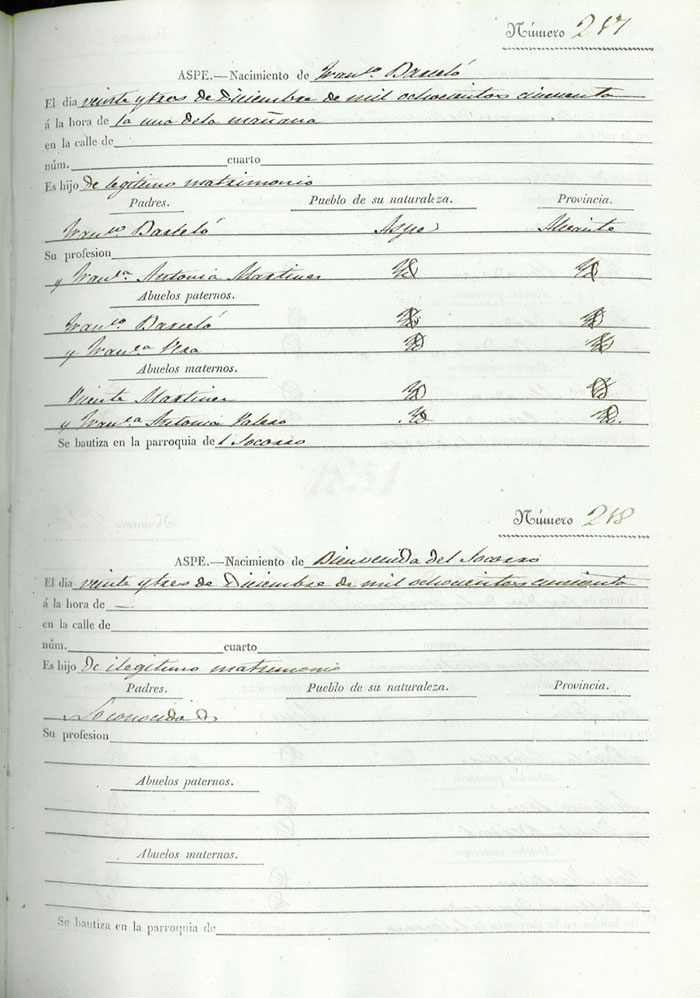 Número 217
ASPE.—Nacimiento de Franco. Barceló
El dia veinte y tres de Diciembre de mil ochocientos cincuenta
á la hora de la una dela mañana
en la calle de
núm. cuarto
Es hijo de legitimo matrimonio
Padres. Pueblo de su naturaleza. Provincia.
Franco Barceló Aspe Alicante
Su profesion
y Franca. Antonia Martinez Yd Yd
Abuelos paternos.
Franco. Barceló Yd Yd
y Franca Vera Yd Yd
Abuelos maternos.
Vicente Martinez Yd Yd
y Franca Antonia Valero Yd Yd.
Se bautiza en la parroquia del Socorro
1851
Número 218
ASPE.—Nacimiento de Bienvenida del Socorro
El dia veinte y tres de Diciembre de mil ochocientos cincuenta
á la hora de —
en la calle de
núm. cuarto
Es hijo de ilegitimo matrimonio
Padres. Pueblo de su naturaleza. Provincia.
Su profesion
Abuelos paternos.
Abuelos maternos.
Se bautiza en la parroquia de